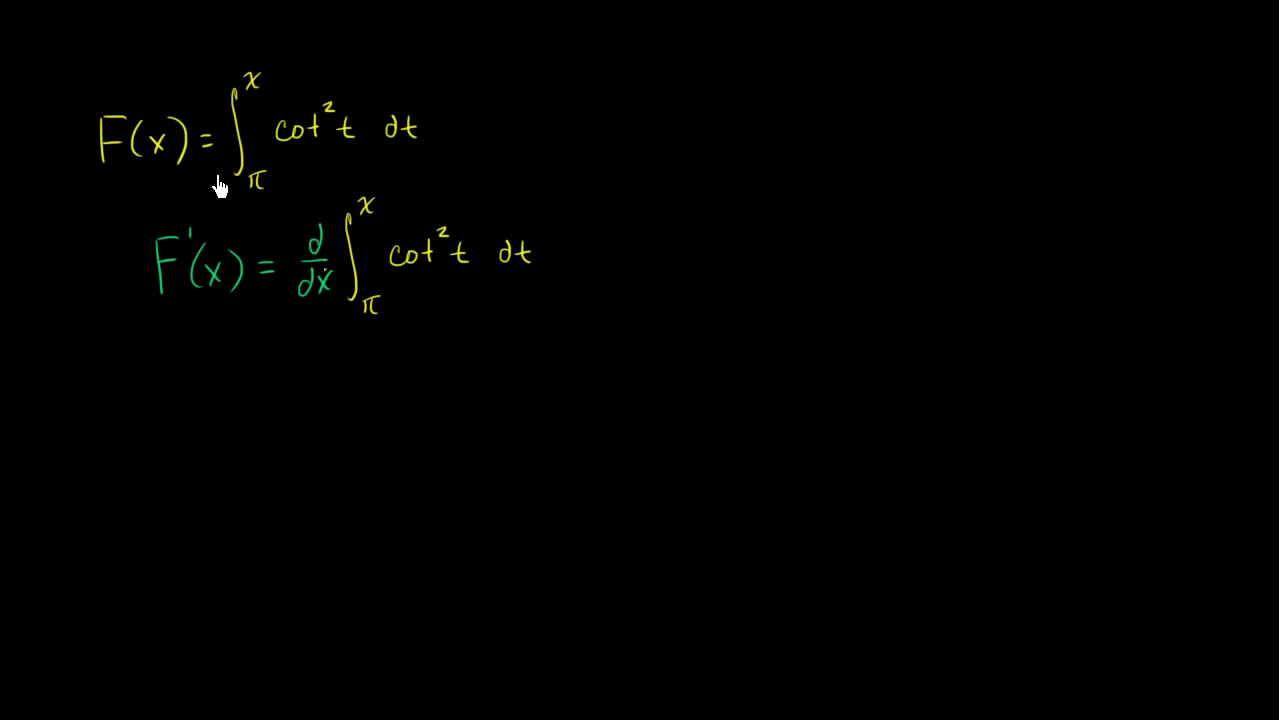 F(x) = ∫_π^x cot² t dt
F'(x) = d/dx ∫_π^x cot² t dt